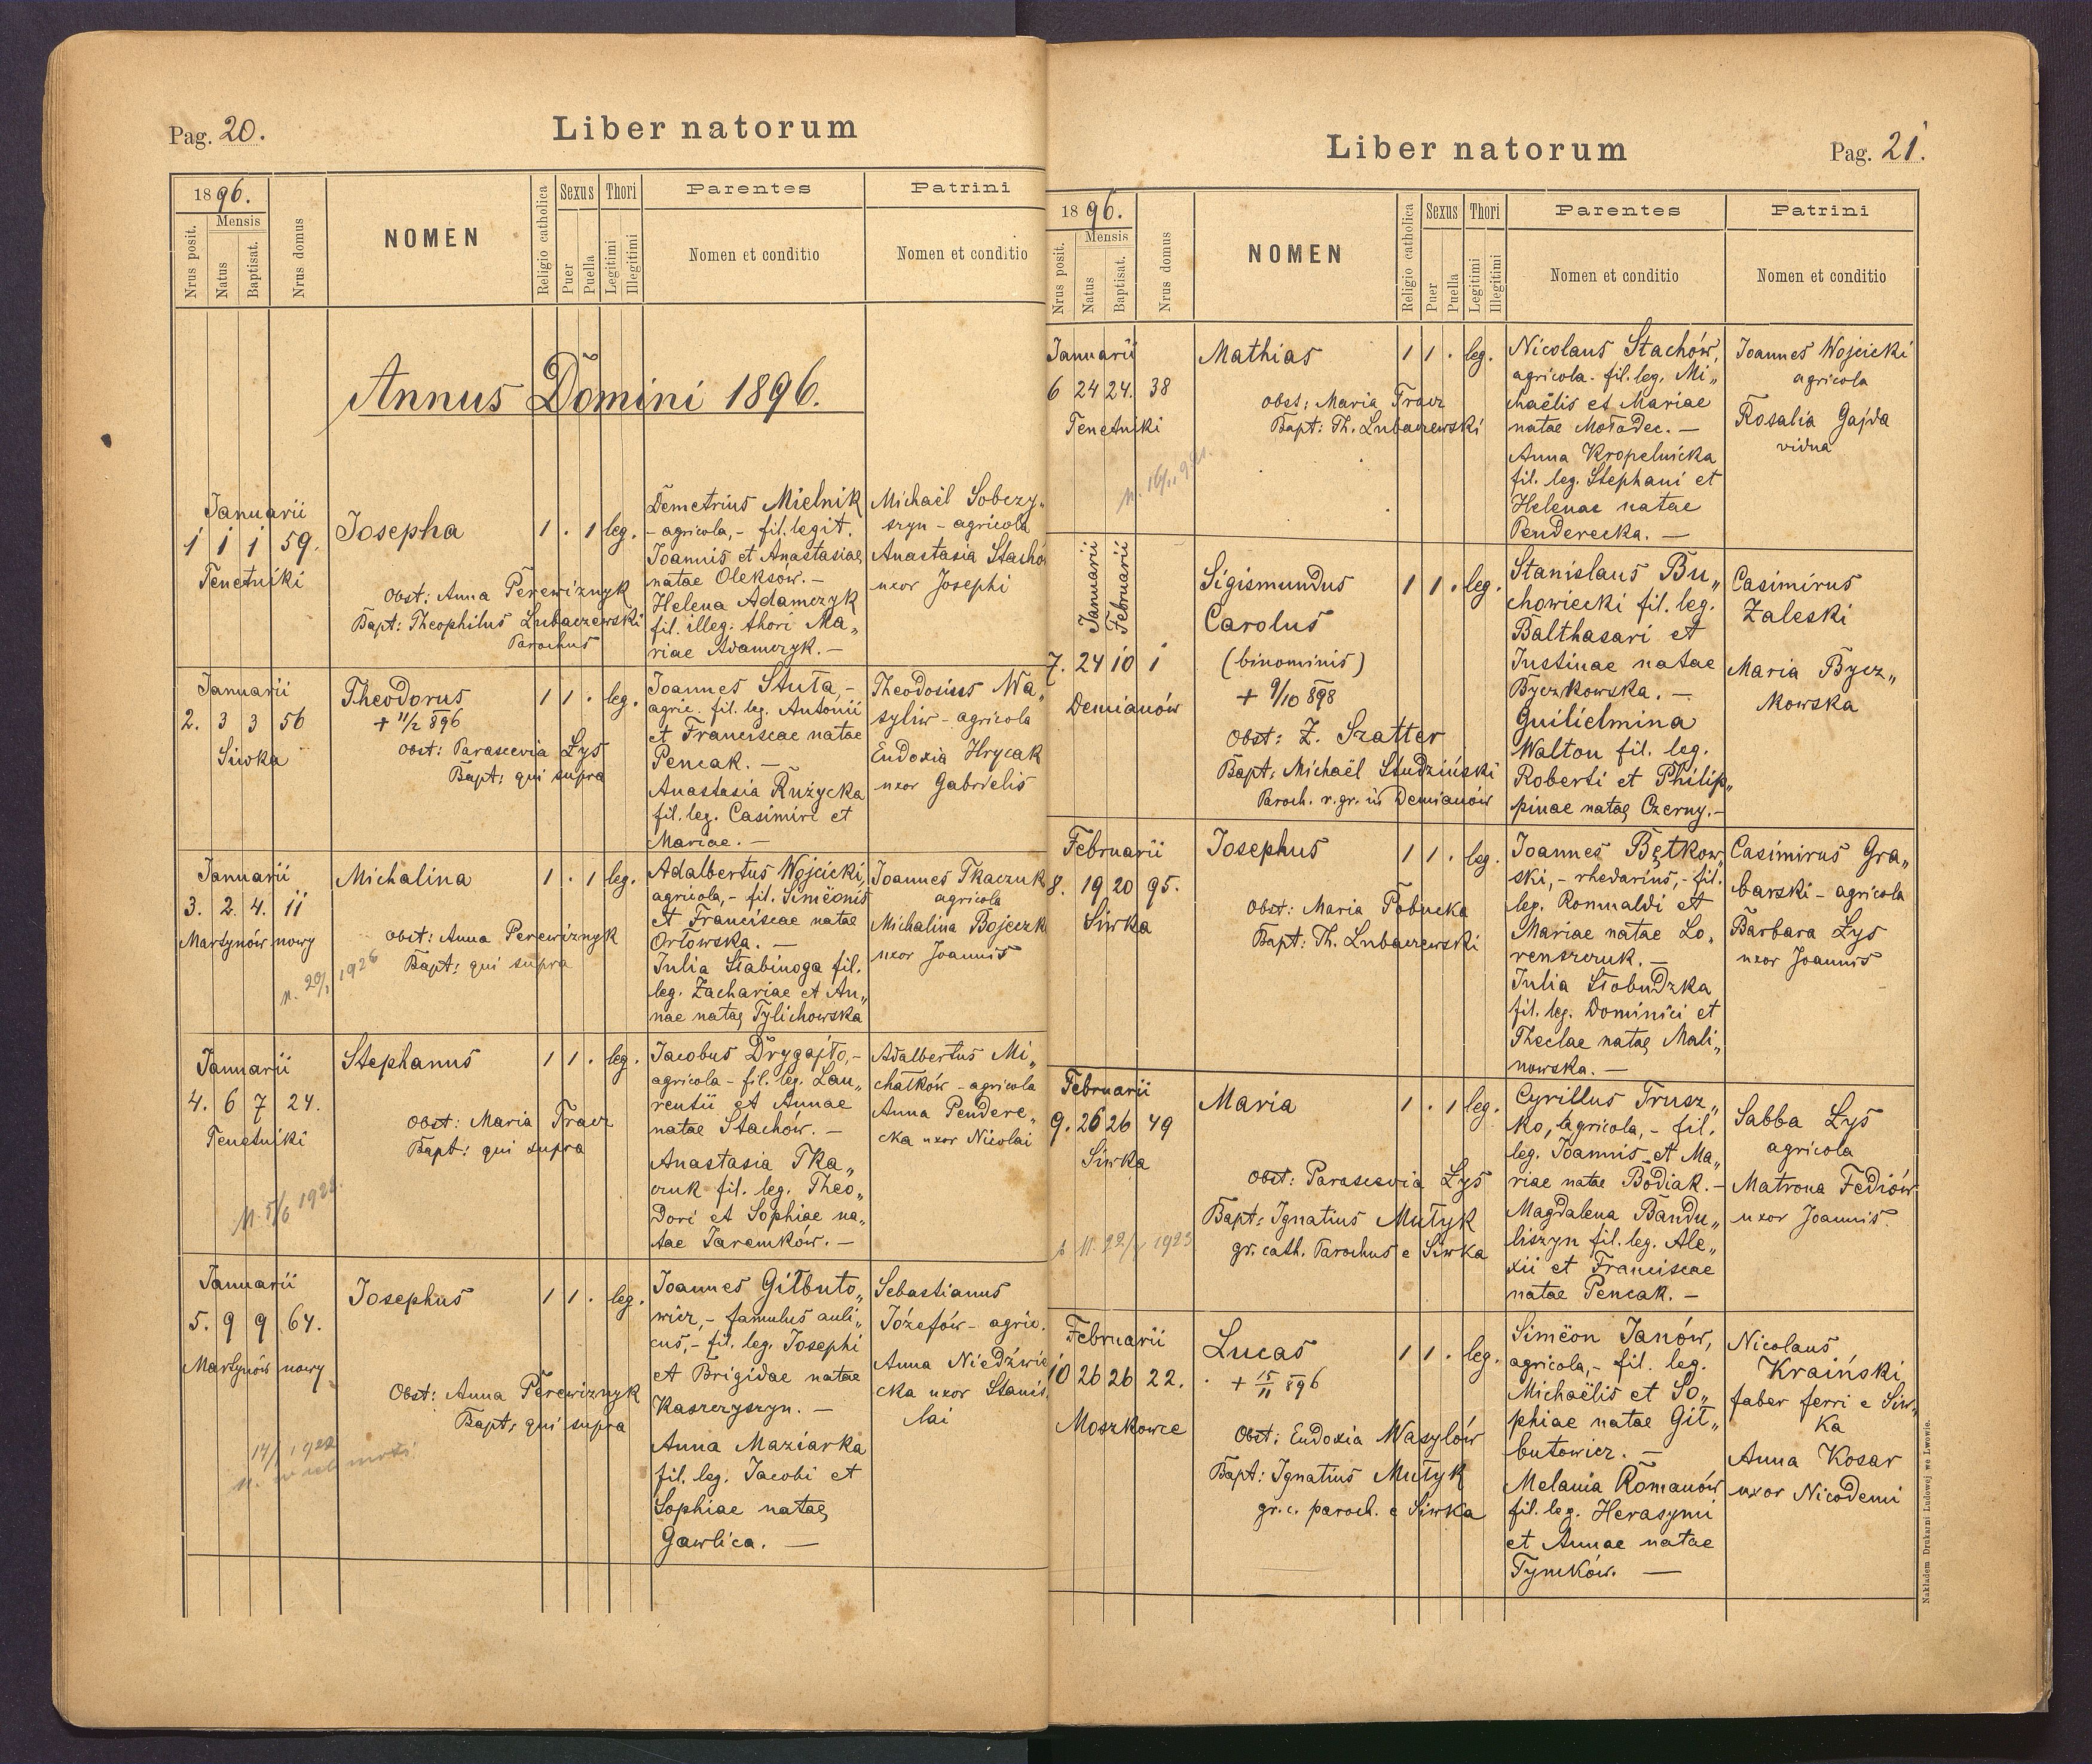 Pag. 20.
Liber natorum
1896.
Mensis
Nrus posit.
Natus
Baptisat.
Nrus domus
NOMEN
Religio catholica
Sexus
Puer
Puella
Thori
Legitimi
Illegitimi
Parentes
Nomen et conditio
Patrini
Nomen et conditio
Annus Domini 1896.
Januarii
1 1 1 59.
Tenetniki
Josepha
1 . 1 leg.
Obst: Anna Perewiznyk
Bapt: Theophilus Lubaczewski
Parochus
Demetrius Mielnik
- agricola, - fil. legit.
Joannis et Anastasiae
natae Oleksow. -
Helena Adamczyk
fil. illeg. thori Ma„
riae Adamczyk. -
Michaël Sobczy„
szyn - agricola
Anastasia Stacho
uxor Josephi
Januarii
2. 3 3 56
Siwka
Theodorus
+ 11/2 896
1 1 . leg.
Obst: Parascevia Łys
Bapt: qui supra
Joannes Stuła, -
agric. fil. leg. Antonii
et Franciscae natae
Pencak. -
Anastasia Rużycka
fil. leg. Casimiri et
Mariae. -
Theodosius Wa„
syliw - agricola
Eudoxia Hrycak
uxor Gabrielis
Januarii
3. 2. 4. 11
Martynów nowy
Michalina
1 . 1 leg.
Obst: Anna Perewiznyk
Bapt: qui supra
1926
Adalbertus Wojcicki,
agricola, - fil. Simëonis
et Franciscae natae
Orłowska. -
Julia Słabinoga fil.
leg. Zachariae et An„
nae natae Tylichowska
Joannes Tkaczuk
agricola
Michalina Bojeczk
uxor Joannis
Januarii
4. 6 7 24.
Tenetniki
Stephanus
1 1 . leg.
Obst: Maria Tracz
Bapt: qui supra
Jacobus Drygajło, -
agricola - fil. leg. Lau„
rentii et Annae
natae Stachow. -
Anastasia Tka„
czuk fil. leg. Theo„
dori et Sophiae na„
tae Jaremków. -
Adalbertus Mi„
chałków - agricola
Anna Pendere„
cka uxor Nicolai
Januarii
5. 9 9 64.
Martynów nowy
Josephus
1 1 . leg.
Obst: Anna Perewiznyk
Bapt: qui supra
Joannes Giłbuto„
wicz, - famulus auli„
cus, - fil. leg. Josephi
et Brigidae natae
Kaszczyszyn. -
Anna Maziarka
fil. leg. Jacobi et
Sophiae natae
Gawlica. -
Sebastianus
Józefów - agric.
Anna Niedźwie
cka uxor Stanis
lai
Liber natorum
Pag. 21.
1896.
Mensis
Nrus posit.
Natus
Baptisat.
Nrus domus
NOMEN
Religio catholica
Sexus
Puer
Puella
Thori
Legitimi
Illegitimi
Parentes
Nomen et conditio
Patrini
Nomen et conditio
Januarii
6 24 24. 38
Tenetniki
Mathias
1 1 . leg.
Obst: Maria Tracz
Bapt: Th. Lubaczewski
Nicolaus Stachów,
agricola - fil. leg. Mi„
chaëlis et Mariae
natae Mołodec. -
Anna Kropelnicka
fil. leg. Stephani et
Helenae natae
Penderecka. -
Joannes Wojcicki
agricola
Rosalia Gajda
vidua
Januarii
Februarii
7. 24 10 1
Demianów
Sigismundus
Carolus
(binominis)
+ 9/10 898
1 1 . leg.
Obst: Z. Szatter
Bapt: Michaël Studziński
Paroch. r. gr. in Demianów
Stanislaus Bu„
chowiecki fil. leg.
Balthasari et
Justinae natae
Byczkowska. -
Guilielmina
Walton fil. leg.
Roberti et Philip„
pinae natae Czerny. -
Casimirus
Zaleski
Maria Bycz„
kowska
Februarii
8. 19 20 95.
Siwka
Josephus
1 1 . leg.
Obst: Maria Pobucka
Bapt: Th. Lubaczewski
Joannes Bętkow„
ski, - rhedarius, - fil.
leg. Romualdi et
Mariae natae Lo„
renszczuk. -
Julia Słobudzka
fil. leg. Dominici et
Theclae natae Mali„
nowska. -
Casimirus Gra„
barski - agricola
Barbara Łys
uxor Joannis
Februarii
9. 26 26 49
Siwka
Maria
1 . 1 leg.
Obst: Parascevia Łys
Bapt: Ignatius Mułyk
gr. cath. Parochus e Siwka
Cyrillus Trusz„
ko, agricola, - fil.
leg. Joannis et Ma„
riae natae Bodiak. -
Magdalena Bandu„
liszyn fil. leg. Ale„
xii et Franciscae
natae Pencak. -
Sabba Łys
agricola
Matrona Fediów
uxor Joannis.
Februarii
10 26 26 22.
Moszkowce
Lucas
+ 15/11 896
1 1 . leg.
Obst: Eudoxia Wasylów
Bapt: Ignatius Mułyk
gr. c. paroch. e Siwka
Simëon Janów,
agricola, - fil. leg.
Michaëlis et So„
phiae natae Gił„
butowicz. -
Melania Romanów
fil. leg. Herasymi
et Annae natae
Tymków. -
Nicolaus
Kraiński
faber ferri e Siw„
ka
Anna Kosar
uxor Nicodemi
Nakładem Drukarni Ludowej we Lwowie.